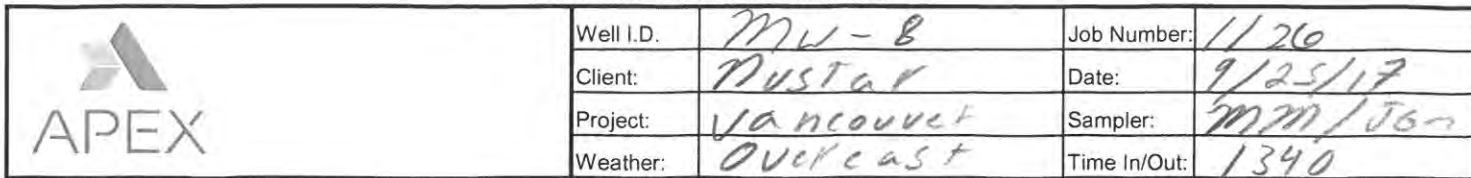 Well I.D. MW-8 Job Number: 1126
Client: Nustar Date: 9/25/17
Project: Vancouver Sampler: MM/
APEX
Weather: Overcast Time In/Out: 1340